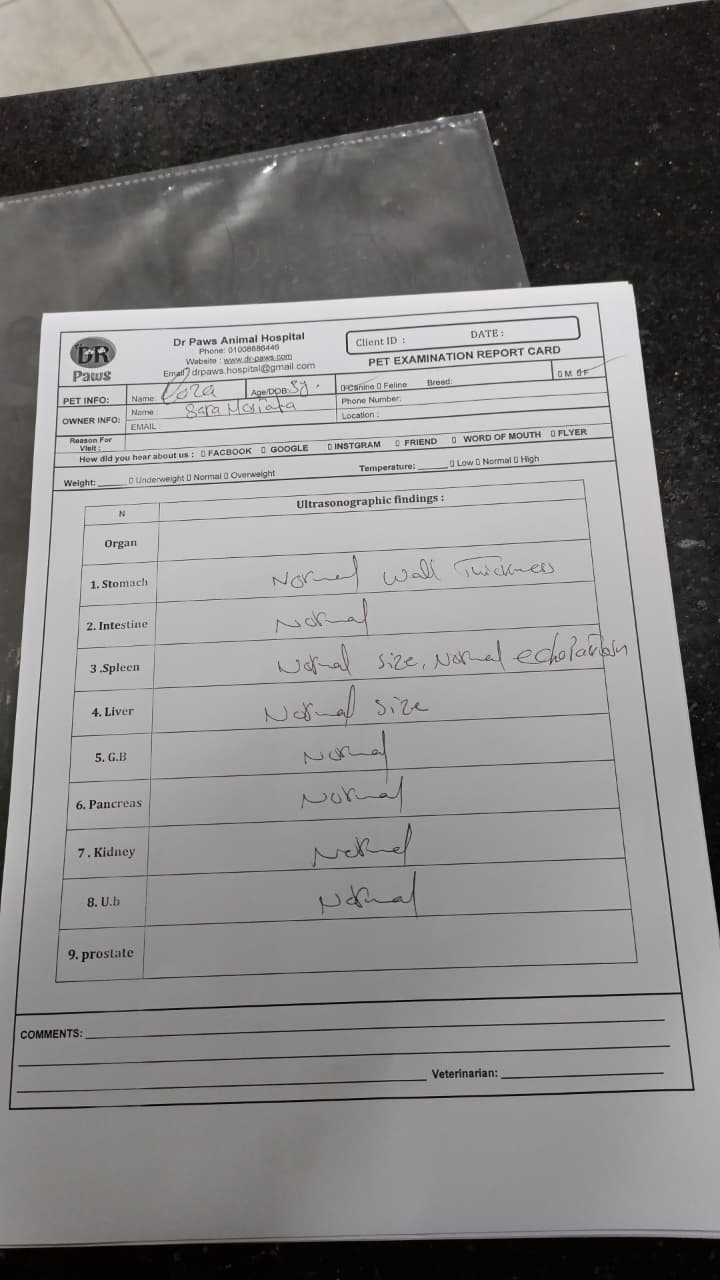 DR
Paws
Dr Paws Animal Hospital
Phone: 01008686446
Website : www.dr-paws.com
Email: drpaws.hospital@gmail.com
Client ID : DATE :
PET EXAMINATION REPORT CARD
PET INFO: Name: Age/DOB: 5y. Canine Feline Breed: M F
OWNER INFO: Name : Sara Phone Number:
EMAIL : Location :
Reason For
Visit :
How did you hear about us : FACBOOK GOOGLE INSTGRAM FRIEND WORD OF MOUTH FLYER
Weight: Underweight Normal Overweight Temperature: Low Normal High
N Ultrasonographic findings :
Organ
1. Stomach Normal wall Thickness
2. Intestine Normal
3 .Spleen Normal size, Normal echo
4. Liver Normal size
5. G.B Normal
6. Pancreas Normal
7 . Kidney Normal
8. U.b Normal
9. prostate
COMMENTS:
Veterinarian: